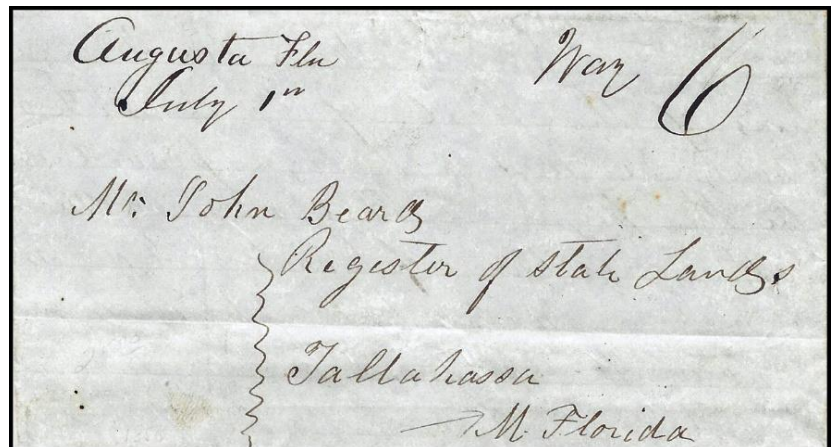 Augusta Fla Way 6
July 1st
Mr. John Beard
Register of State Lands
Tallahassa
M. Florida